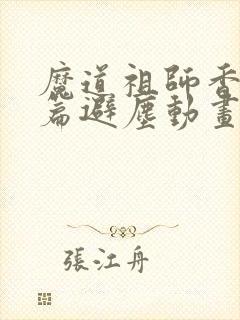 魔道祖師香
篇避塵動畫
張江舟